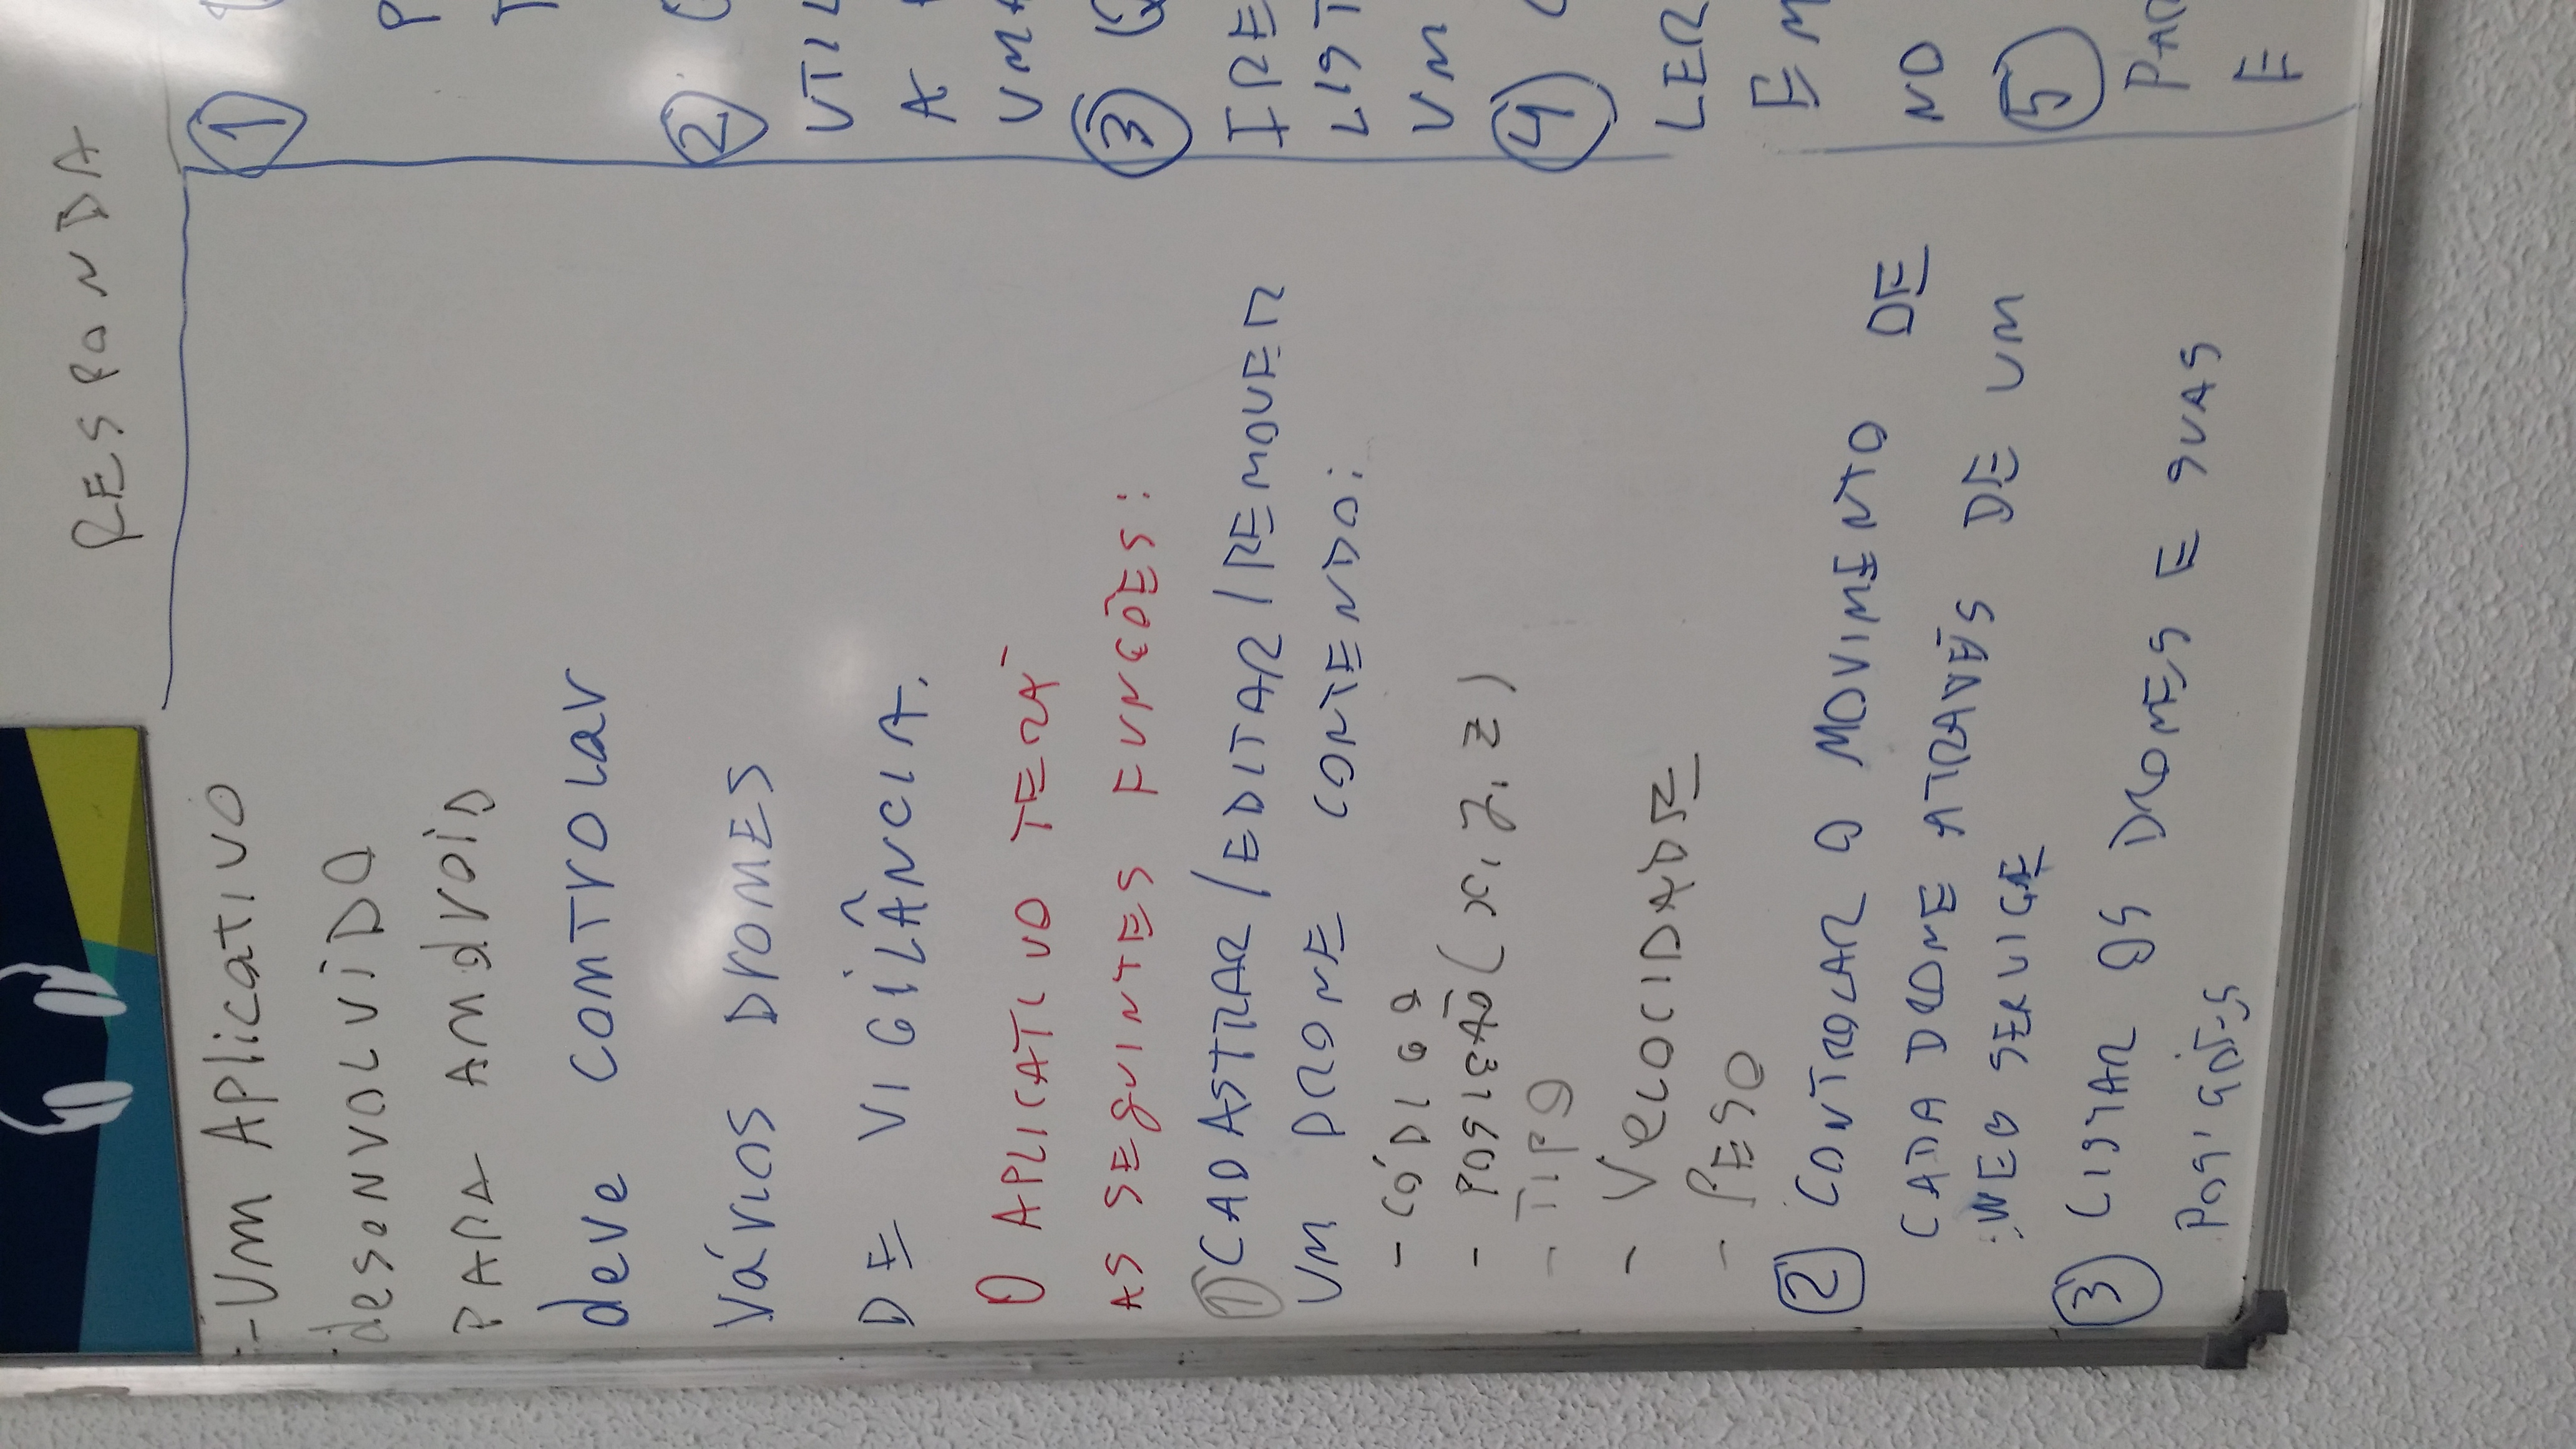 RESPONDA
- Um Aplicativo
desenvolvido
PARA Android
deve controlar
Vários Drones
DE VIGILÂNCIA.
O APLICATIVO TERÁ
AS SEGUINTES FUNÇÕES:
1 CADASTRAR/EDITAR/REMOVER
UM DRONE CONTENDO:
- CÓDIGO
- POSIÇÃO (x, y, z)
- TIPO
- VELOCIDADE
- PESO
2 CONTROLAR O MOVIMENTO DE
CADA DRONE ATRAVÉS DE UM
WEB SERVICE
3 LISTAR OS DRONES E SUAS
POSIÇÕES
1
P
T
2
UTIL
A
UMA
3 Q
IRE
LIST
UM
4
LER
EM
NO
5
PAR
E